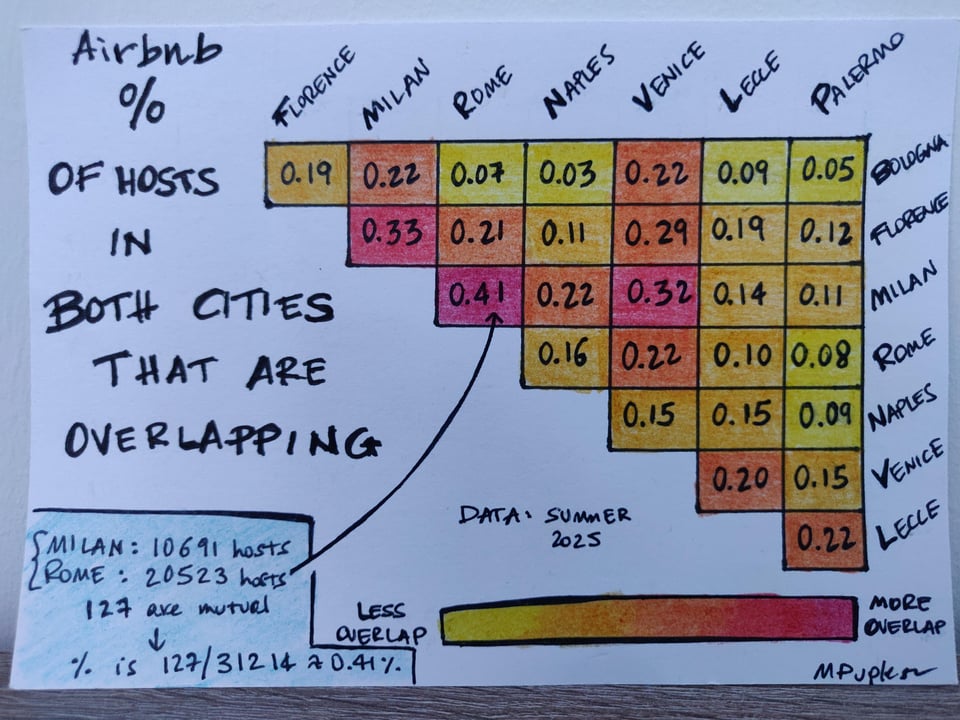 Airbnb
%
OF HOSTS
IN
BOTH CITIES
THAT ARE
OVERLAPPING
FLORENCE MILAN ROME NAPLES VENICE LECCE PALERMO
0.19 0.22 0.07 0.03 0.22 0.09 0.05 BOLOGNA
0.33 0.21 0.11 0.29 0.19 0.12 FLORENCE
0.41 0.22 0.32 0.14 0.11 MILAN
0.16 0.22 0.10 0.08 ROME
0.15 0.15 0.09 NAPLES
0.20 0.15 VENICE
0.22 LECCE
DATA: SUMMER
2025
{MILAN: 10691 hosts
{ROME: 20523 hosts
127 are mutual
↓
% is 127/31214 ≈ 0.41%
LESS
OVERLAP
MORE
OVERLAP